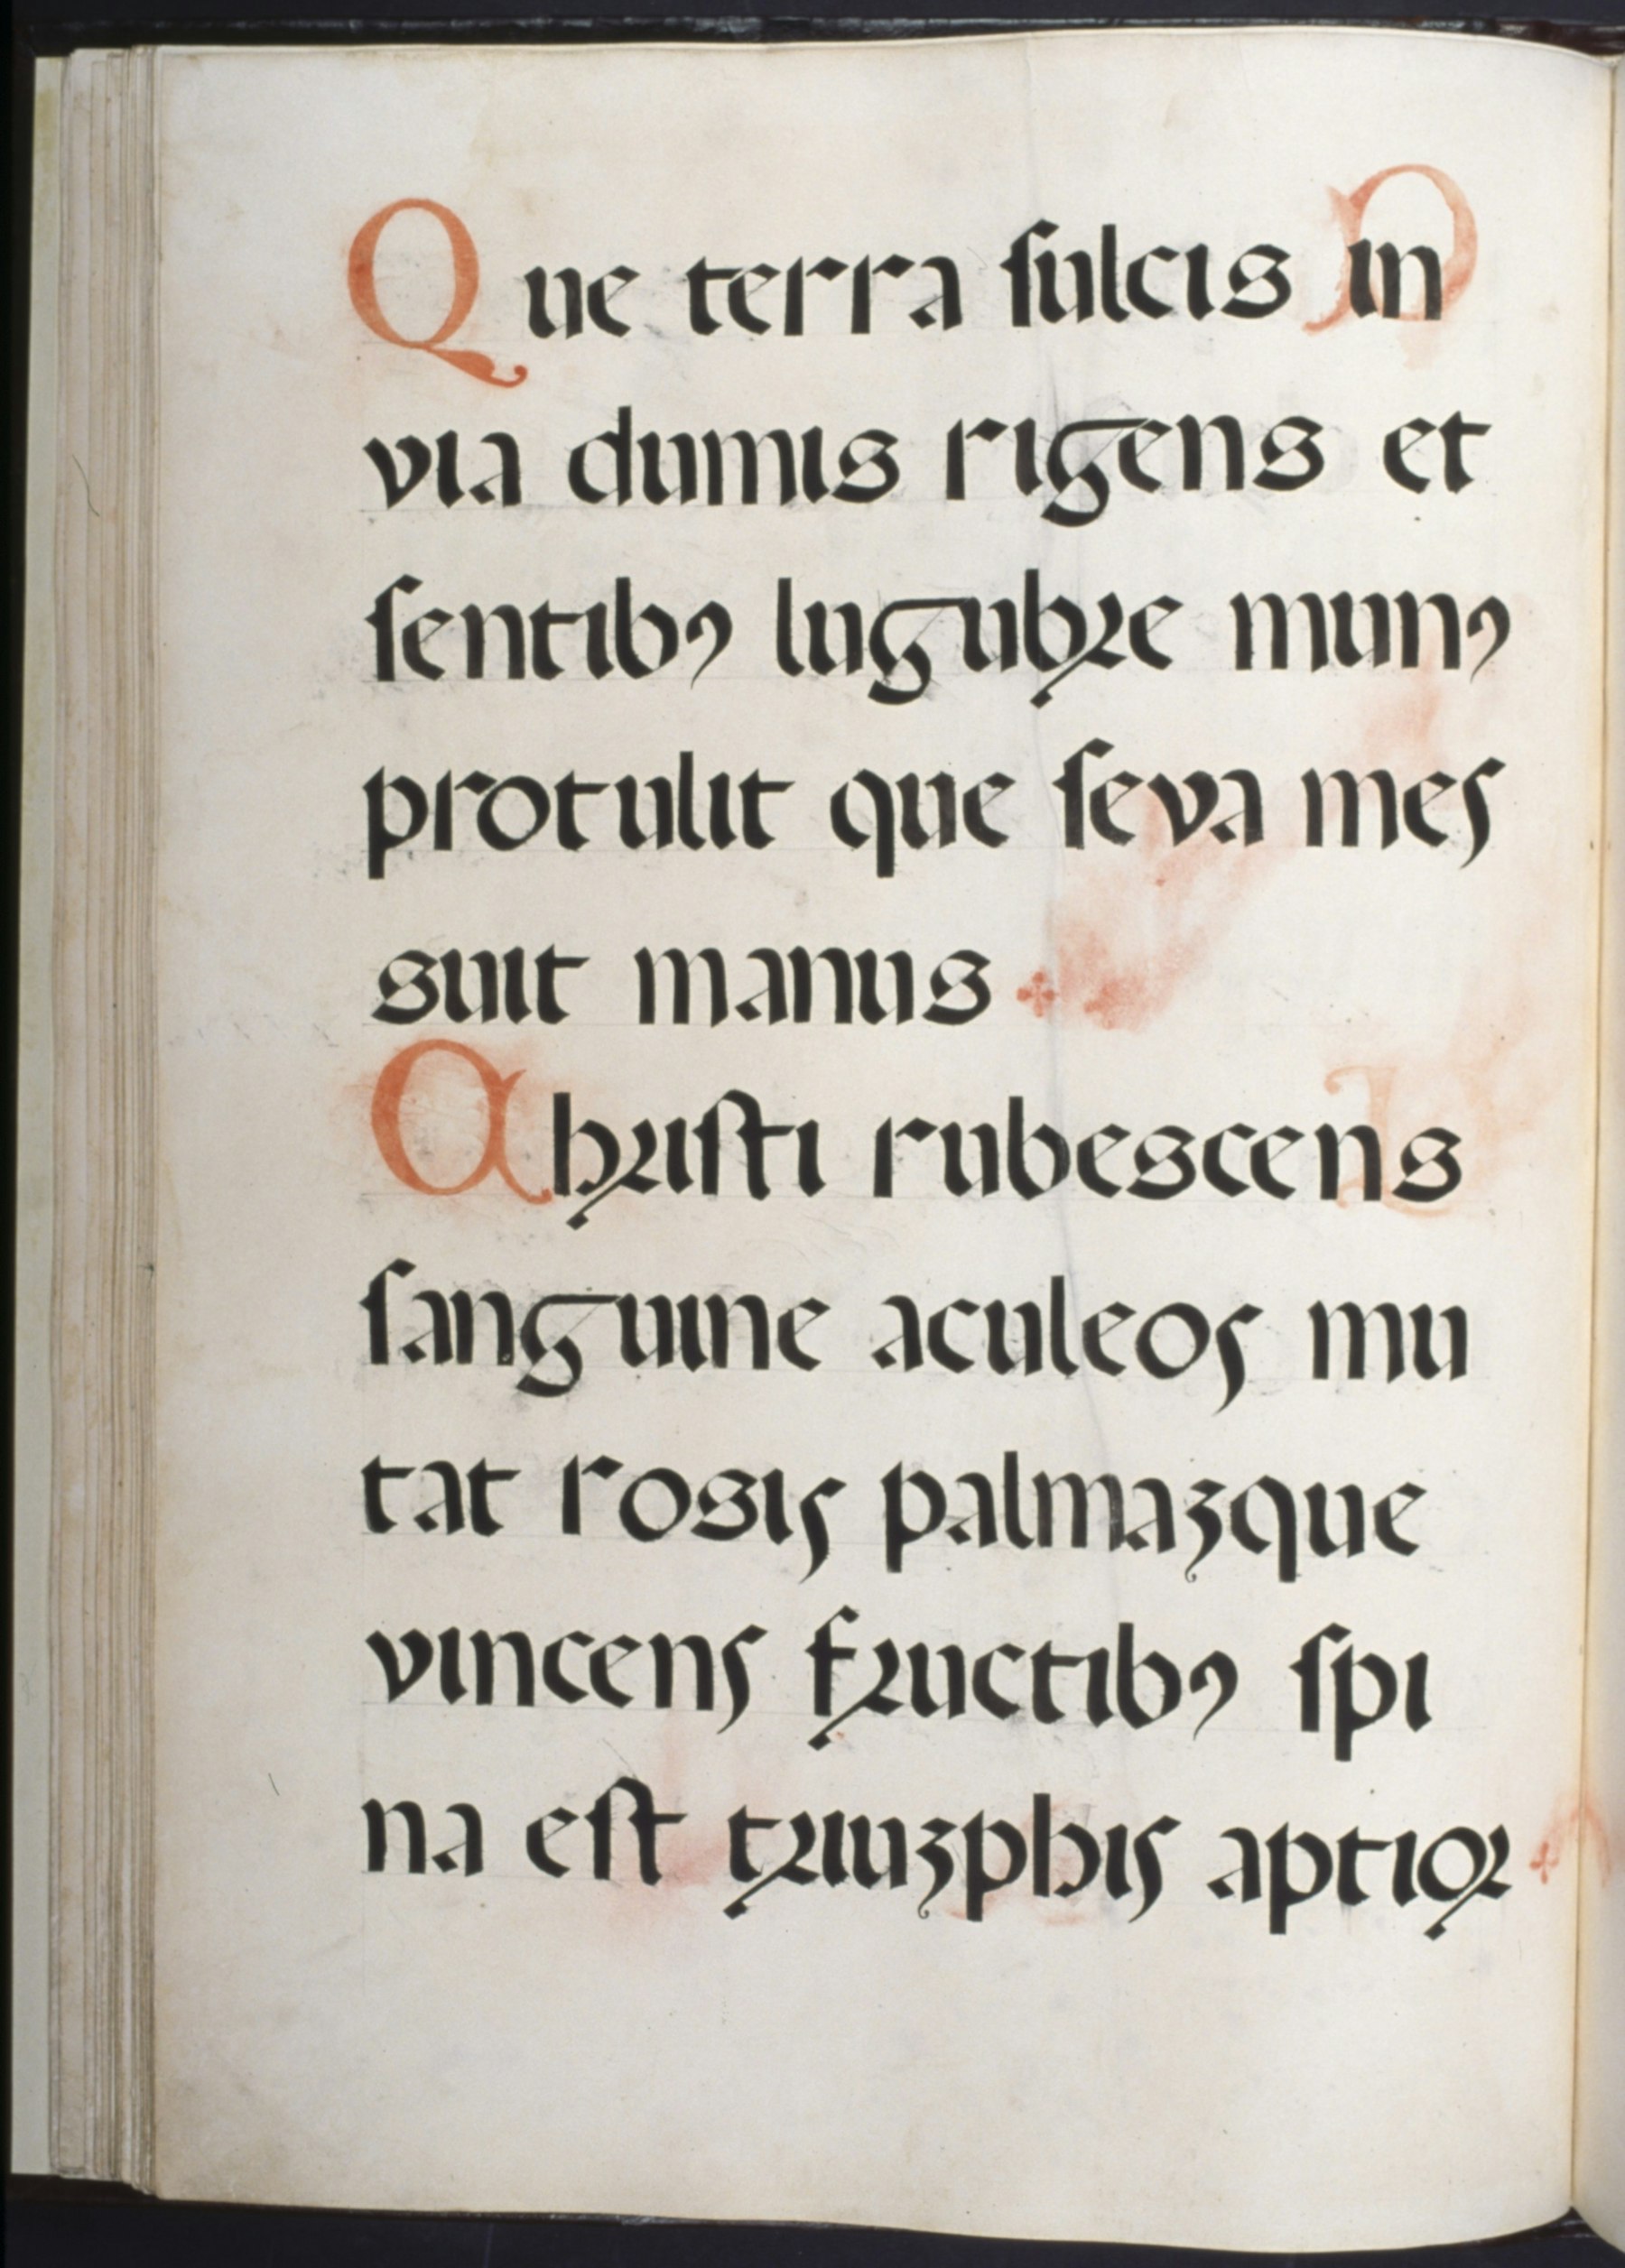 Que terra sulcis in
via dumis rigens et
sentibꝰ lugubre munꝰ
protulit que seva mes
suit manus
Ahristi rubescens
sanguine aculeos mu
tat rosis palmaʒque
vincens fructibꝰ spi
na est triuʒphis aptior